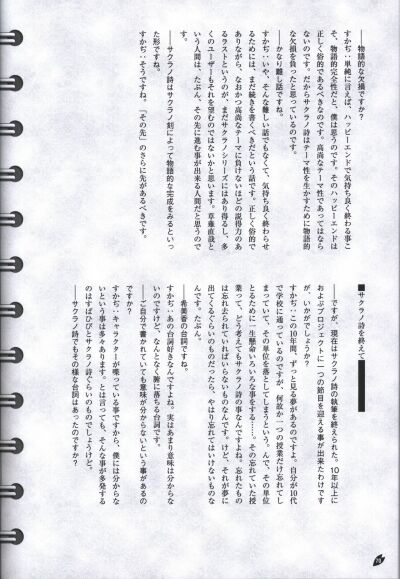 ――物語的な欠損ですか？
すかぢ：単純に言えば、ハッピーエンドで気持ち良く終わる事こ
そ、物語的完全性だと、僕は思うのです。そのハッピーエンドは
正しく俗的であるべきなのです。高尚なテーマ性であってはなら
ないのです。だからサクラノ詩はテーマ性を生かすために物語的
な欠損を負ったと思っているのです。
――かなり難し話ですね。
すかぢ：いや、そんな難しい話でもなくて、気持ち良く終わらせ
るためには、まだ続きを書くべきだという話です。正しく俗的で
ありながら、なおかつ高尚なテーマに負けないほどの説得力のあ
るラストというのが、まだサクラシリーズにはあり得るし、多
くのユーザーもそれを望むのではないかと思います。草薙直哉と
いう人間は、たぶん、その先に進む事が出来る人間だと思うので
す。
――サクラノ詩はサクラノ刻によって物語的な完成をみるといっ
た形ですね。
すかぢ：そうですね。「その先」のさらに先があるべきです。
■サクラノ詩を終えて
――ですが、現在はサクラノ詩の執筆を終えられた。10年以上に
およぶプロジェクトに一つの節目を迎える事が出来たわけです
が、いかがでしょうか？
すかぢ：この10年間、ずっと見る夢があるのですよ。自分が10代
で学校に通っているのですが、何故か一つの授業だけ忘れてし
まっていて、その単位を落としてしまうという。んで、その単位
とるために、一生懸命いろいろな事をする……。その忘れていた授
業って、どう考えてもサクラノ詩の事なんですよね。忘れたもの
は忘れ去られていればいらないものなんです。けど、それが夢に
出てくるぐらいのものだったら、やはり忘れてはいけないものな
んです。たぶん。
――希美香の台詞ですね。
すかぢ：あの台詞好きなんですよね。実はあまり意味は分からな
いのですけど、なんとなく腑に落ちる台詞です。
――ご自分で書かれていても意味が分からないという事があるの
ですか？
すかぢ：キャラクターが喋っている事ですから、僕には分からな
いという事は多々あります。とは言っても、そんな事が多発する
のはすばひびとサクラノ詩ぐらいのものでしょうけど。
――サクラノ詩でもその様な台詞はあったのですか？